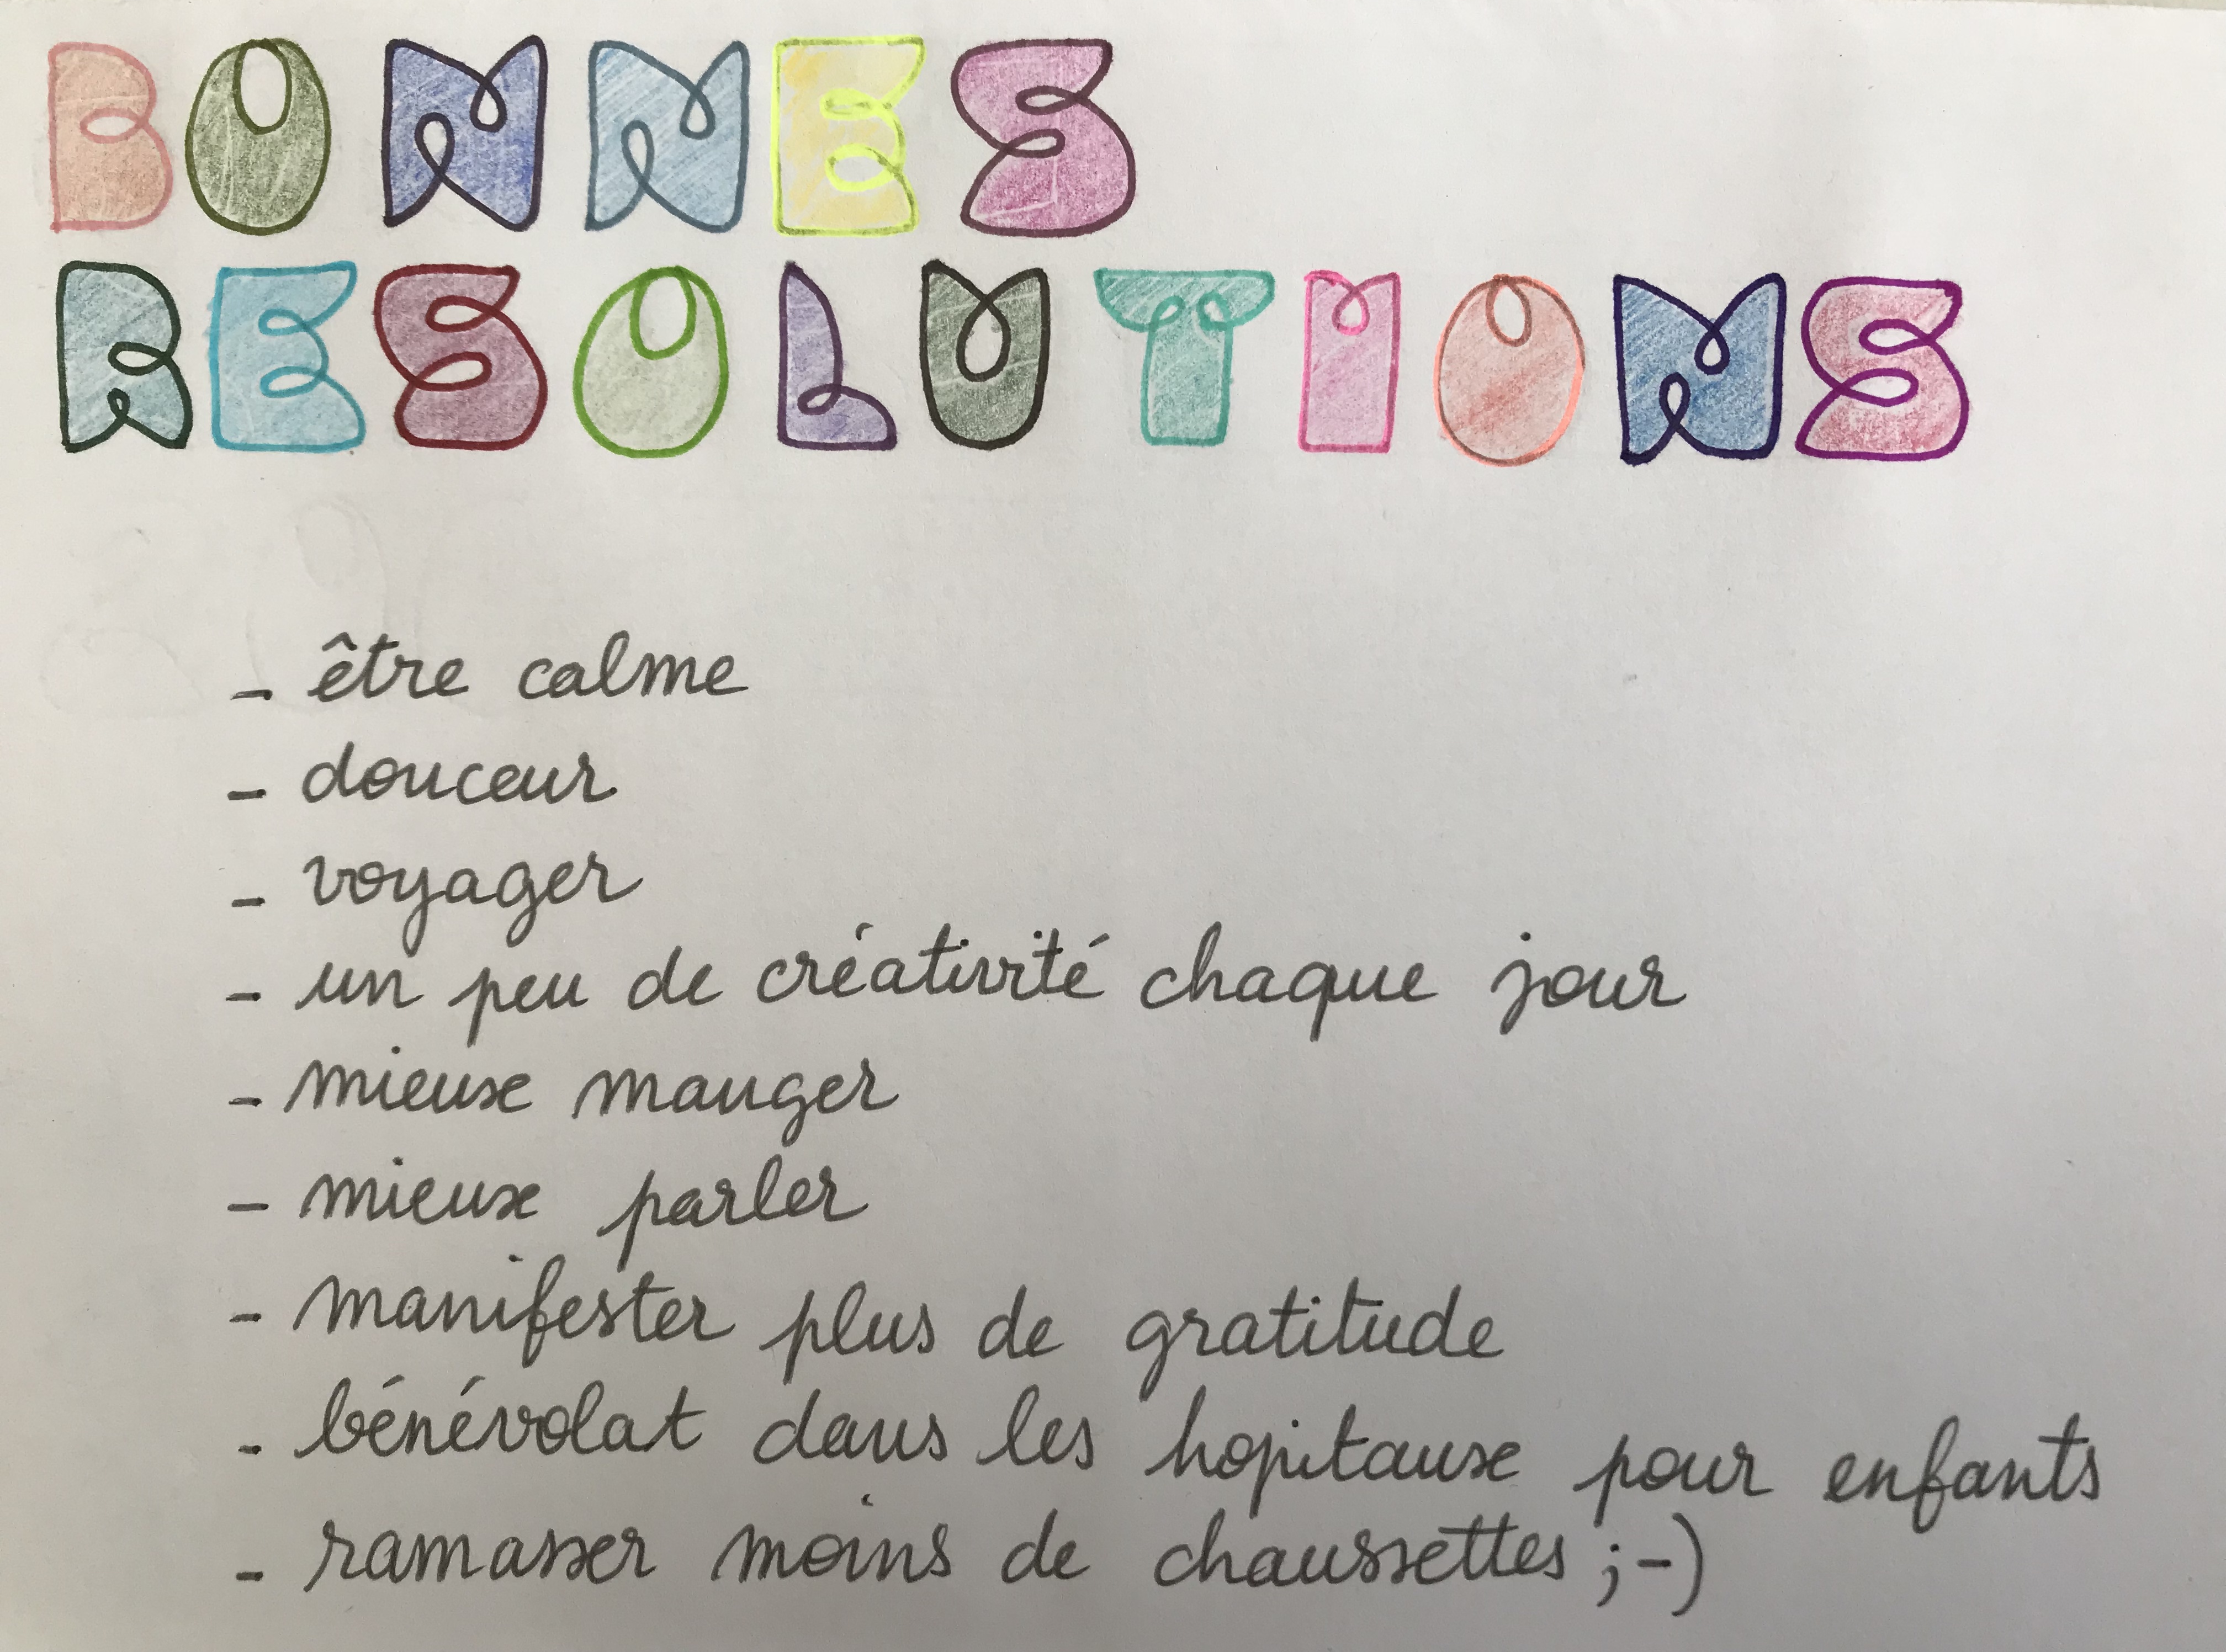 BONNES
RESOLUTIONS
- être calme
- douceur
- voyager
- un peu de créativité chaque jour
- mieux manger
- mieux parler
- manifester plus de gratitude
- bénévolat dans les hopitaux pour enfants
- ramasser moins de chaussettes ;-)